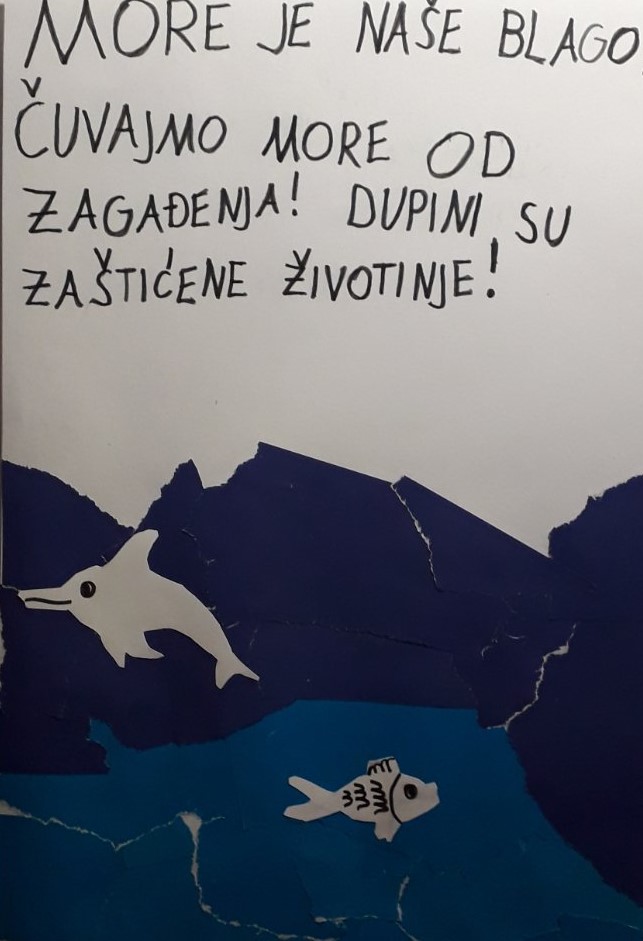 MORE JE NAŠE BLAGO
ČUVAJMO MORE OD
ZAGAĐENJA! DUPINI SU
ZAŠTIĆENE ŽIVOTINJE!